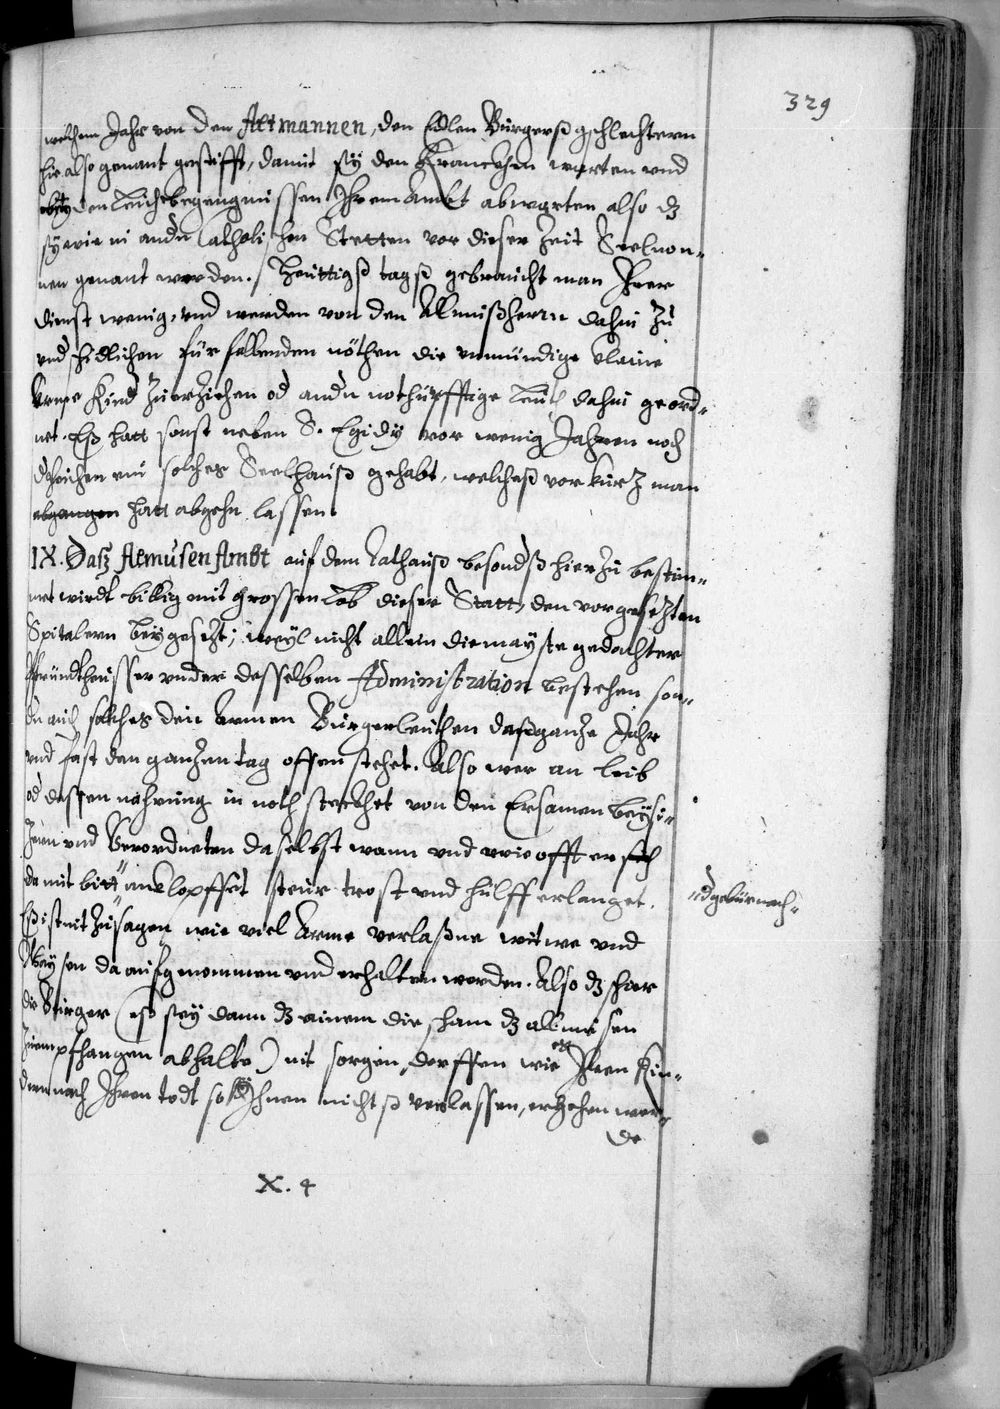 329
welchem Jahr von den Altmannen, den Edlen Burgersgschlechtern
hie also genant gestifft, damit sÿ den Kranckhen warten vnd
den Leichbegengnussen Ihrem ambt abwarten also dz
sÿ wie in andn Catholischen Stetten vor dieser Zeit Seelnon-
nen genant worden. / Heuttigß tagß gebraucht man Ihrer
dienst wenig, vnd werden von den Allmußherrn dahin zu
vndschidlichen fürfallenden nöthen die vnmündige klaine
Arme Kind zuerziehen od andn notturfftige Leuth dahin geord-
net. Eß hatt sonst neben S. Egidÿ vor wenig Jahren noch
dgleichen ein solches Seelhauß gehabt, welcheß vor kurtz man
abgangen hatt abgehn lassen.
IX. Dasz Almusen Ambt auf dem Rathauß besondß hierzu bestim-
met wirdt billig mit grossen Lob dieser Statt, den vorgesetzten
Spitalern beÿgesetzt; weÿl nicht allein die maÿste gedachter
Pfründtheusser vnder desselben Administration bestehen son-
dn auch solches den Armen Burgerleuthen daß gantze Jahr
vnd fast den gantzen tag offen stehet. Also wer an leib
od dessen nahrung in noth steckhet von den Ersamen Beÿsi-
zern vnd Verordneten daselbst wann vnd wie offt er sich
damit bitt anklopffet steur trost vnd hülff erlanget.
d gebür nach
Eß ist nit zusagen wie viel Arme verlaßne witwe vnd
Waÿsen da aufgenommen vnd erhalten werden. Also dz schier
die Burger (es seÿ dann dz ainem die scham dz allmusen
zuempfhangen abhalte) nit sorgen derffen wie es Ihren Kin-
dern nach Ihrem todt so sÿ Ihnen nichtß verlassen, ergehen wer-
de
X. 4